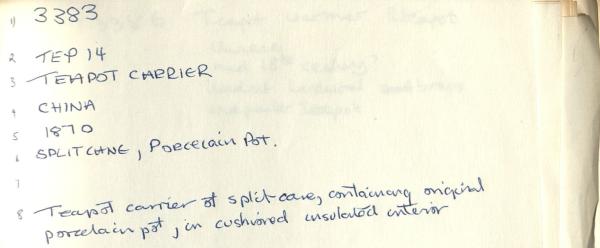 1) 3383
2 TEP 14
3 TEAPOT CARRIER
4 CHINA
5 1870
6 SPLITCANE, PORCELAIN POT.
7
8 Teapot carrier of split-cane, containing original
porcelain pot, in cushioned insulated interior